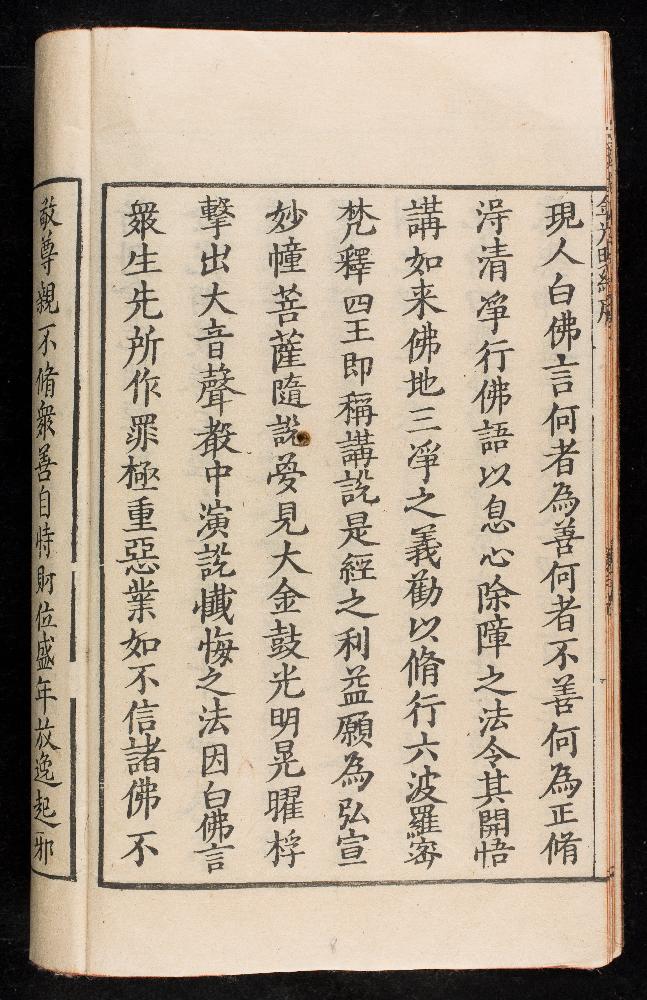 現人白佛言何者為善何者不善何為正脩
淂清淨行佛語以息心除障之法令其開悟
講如来佛地三淨之義勸以脩行六波羅宻
梵釋四王即稱講說是經之利益願為弘宣
妙幢菩薩隨說夢見大金鼓光明晃曜桴
擊出大音聲聲中演說懺悔之法因白佛言
衆生先所作罪極重惡業如不信諸佛不
敬尊親不脩衆善自恃財位盛年放逸起邪